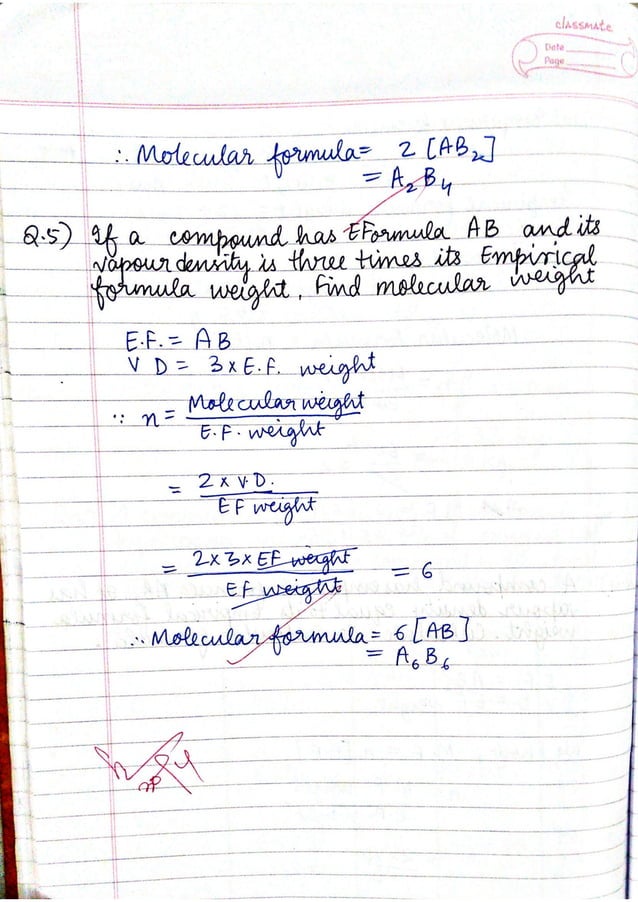 classmate
Date
Page
∴ Molecular formula = 2 [AB₂]
= A₂B₄
Q.5) If a compound has EFormula AB and its
vapour density is three times its Empirical
formula weight, find molecular weight
E.F. = AB
V D = 3 x E.F. weight
∵ n = Molecular weight
E.F. weight
= 2 x V.D.
EF weight
= 2x3x EF weight = 6
EF weight
∴ Molecular formula = 6 [AB]
= A₆B₆